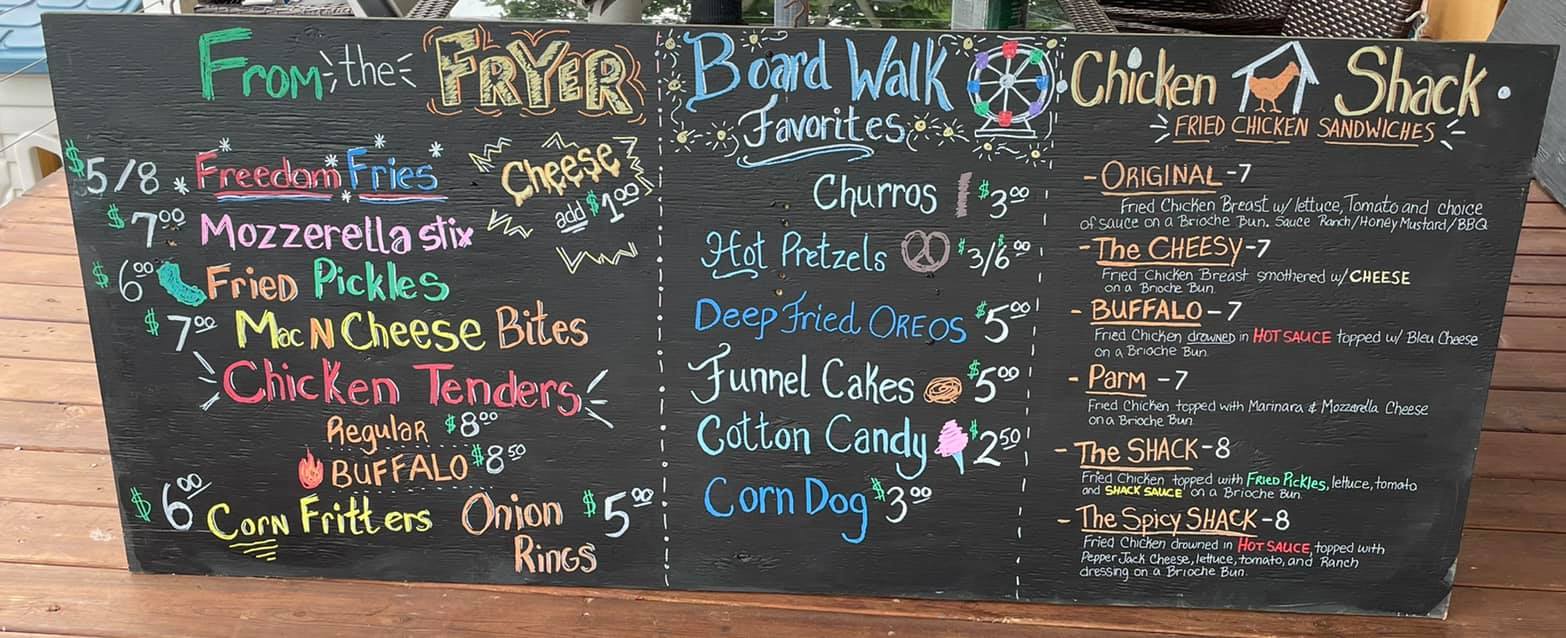 From the FRYER
$5/8 Freedom Fries
Cheese
add $1.00
$7.00 Mozzerella stix
$6.00 Fried Pickles
$7.00 Mac N Cheese Bites
Chicken Tenders
Regular $8.00
BUFFALO $8.50
$6.00 Corn Fritters
Onion $5.00
Rings
Board Walk
Favorites
Churros $3.00
Hot Pretzels $3/$6.00
Deep Fried OREOS $5.00
Funnel Cakes $5.00
Cotton Candy $2.50
Corn Dog $3.00
Chicken Shack
FRIED CHICKEN SANDWICHES
- ORIGINAL - 7
Fried Chicken Breast w/ lettuce, Tomato and choice
of sauce on a Brioche Bun. Sauce Ranch/Honey Mustard/BBQ
- The CHEESY - 7
Fried Chicken Breast smothered w/ CHEESE
on a Brioche Bun.
- BUFFALO - 7
Fried Chicken drowned in HOT SAUCE topped w/ Bleu Cheese
on a Brioche Bun.
- Parm - 7
Fried Chicken topped with Marinara & Mozzarella Cheese
on a Brioche Bun.
- The SHACK - 8
Fried Chicken topped with FRIED PICKLES, lettuce, tomato
and SHACK SAUCE on a Brioche Bun.
- The Spicy SHACK - 8
Fried Chicken drowned in HOT SAUCE, topped with
Pepper Jack Cheese, lettuce, tomato, and Ranch
dressing on a Brioche Bun.